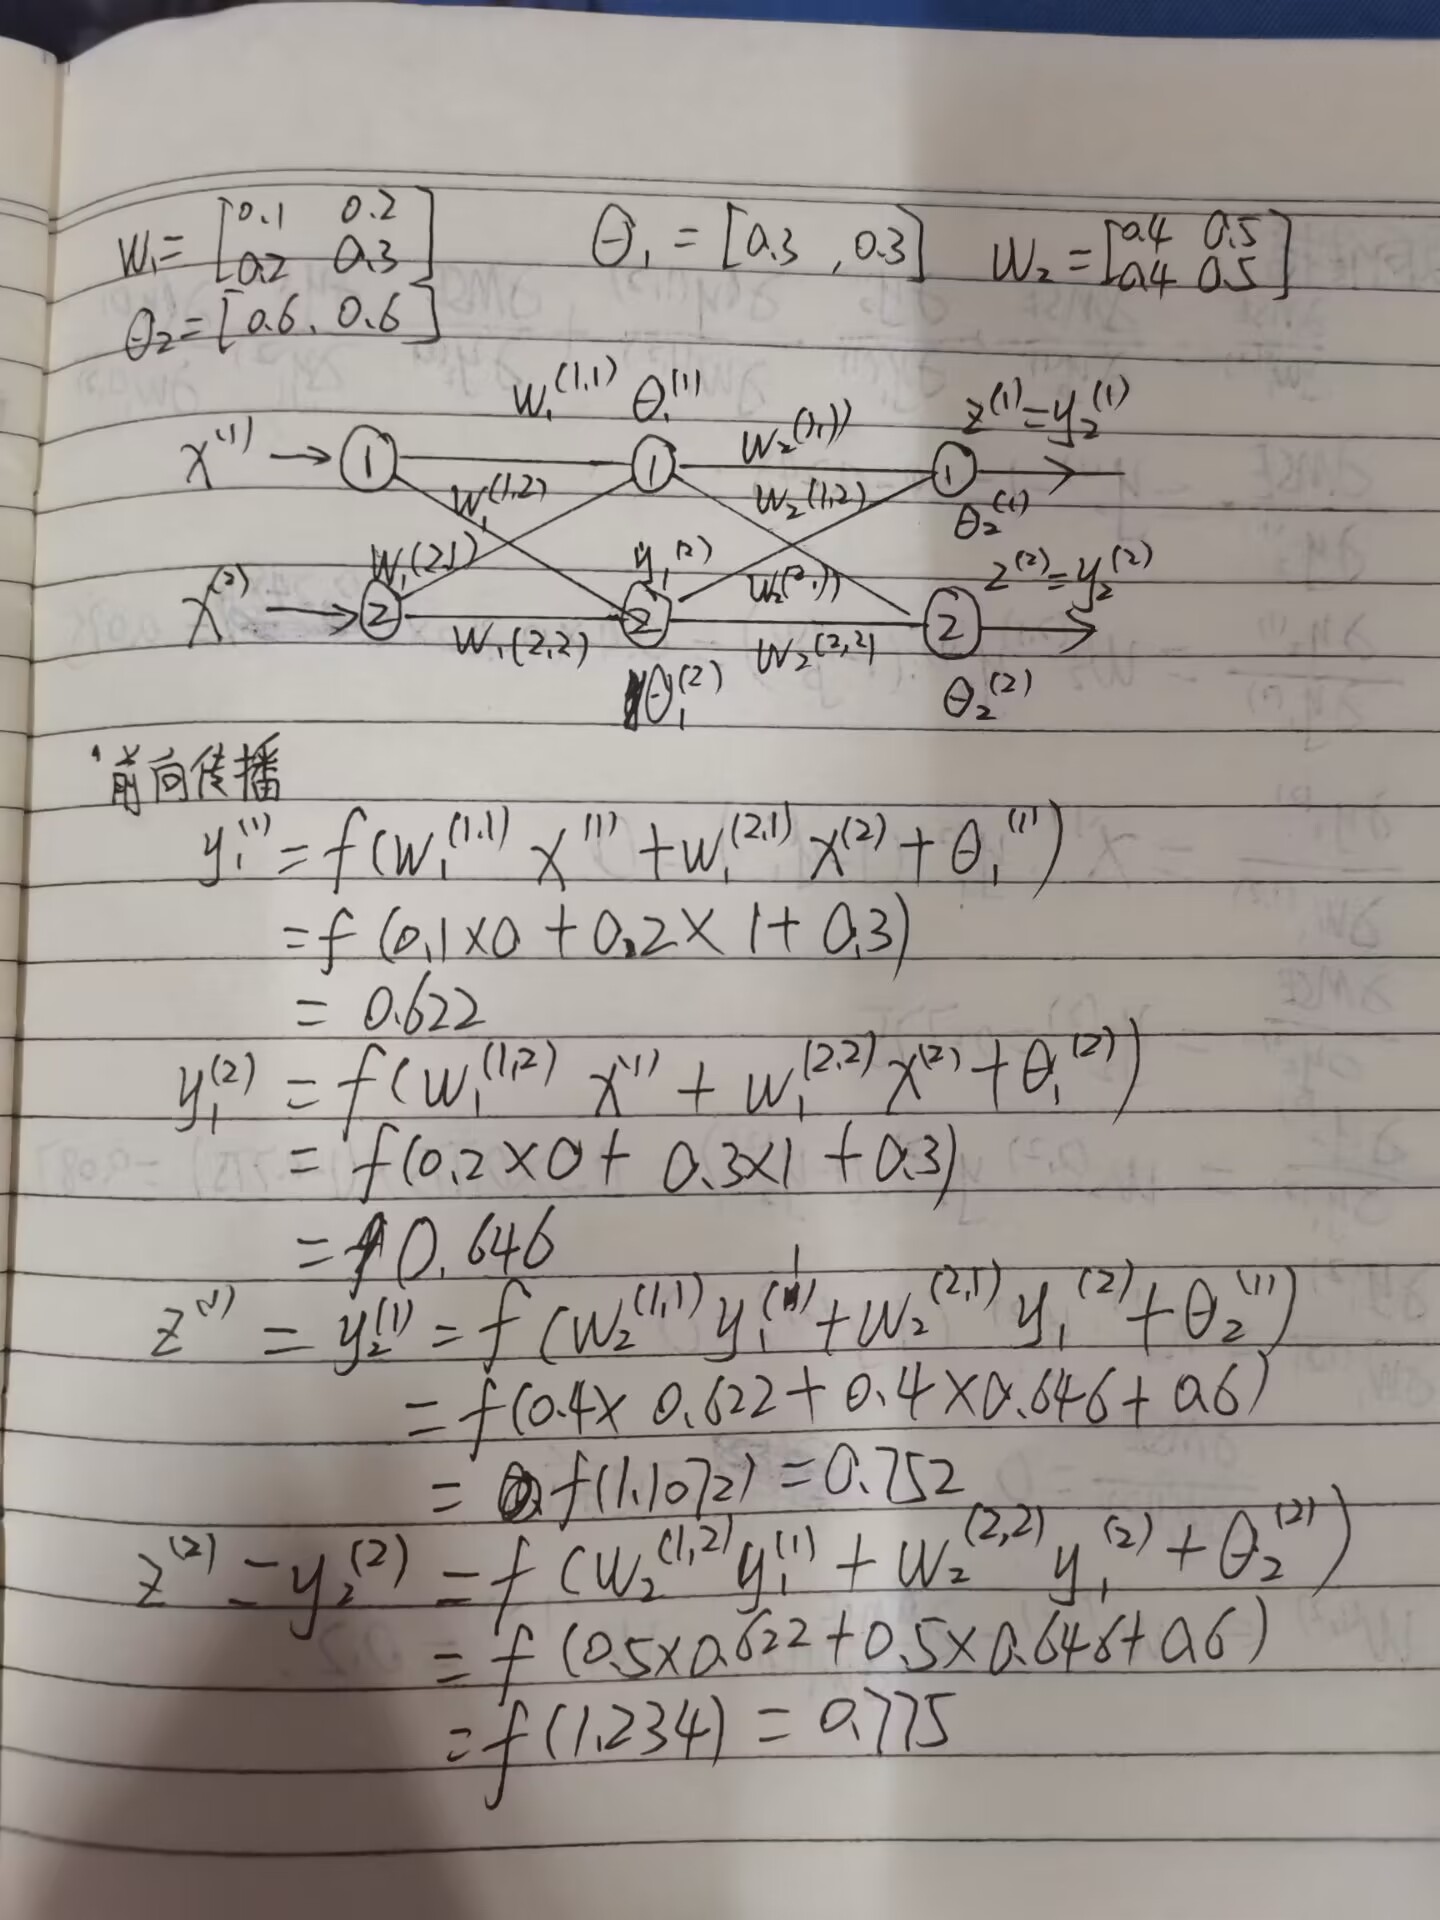 W₁ = [0.1 0.2 θ₁ = [0.3 , 0.3] W₂ = [0.4 0.5
0.2 0.3] 0.4 0.5]
θ₂ = [0.6, 0.6]
W₁^(1,1) θ₁^(1) z^(1) = y₂^(1)
x^(1) → 1 1 W₂^(1,1) 1
W₁^(1,2) W₂^(1,2) θ₂^(1)
W₁(2,1) y₁^(2) z^(2) = y₂^(2)
x^(2) → 2 2 W₂^(2,1) 2
W₁(2,2) W₂^(2,2)
θ₁^(2) θ₂^(2)
前向传播
y₁^(1) = f(W₁^(1,1) x^(1) + W₁^(2,1) x^(2) + θ₁^(1))
= f(0.1×0 + 0.2×1 + 0.3)
= 0.622
y₁^(2) = f(W₁^(1,2) x^(1) + W₁^(2,2) x^(2) + θ₁^(2))
= f(0.2×0 + 0.3×1 + 0.3)
= 0.646
z^(1) = y₂^(1) = f(W₂^(1,1) y₁^(1) + W₂^(2,1) y₁^(2) + θ₂^(1))
= f(0.4×0.622 + 0.4×0.646 + 0.6)
= f(1.1072) = 0.752
z^(2) = y₂^(2) = f(W₂^(1,2) y₁^(1) + W₂^(2,2) y₁^(2) + θ₂^(2))
= f(0.5×0.622 + 0.5×0.646 + 0.6)
= f(1.234) = 0.775